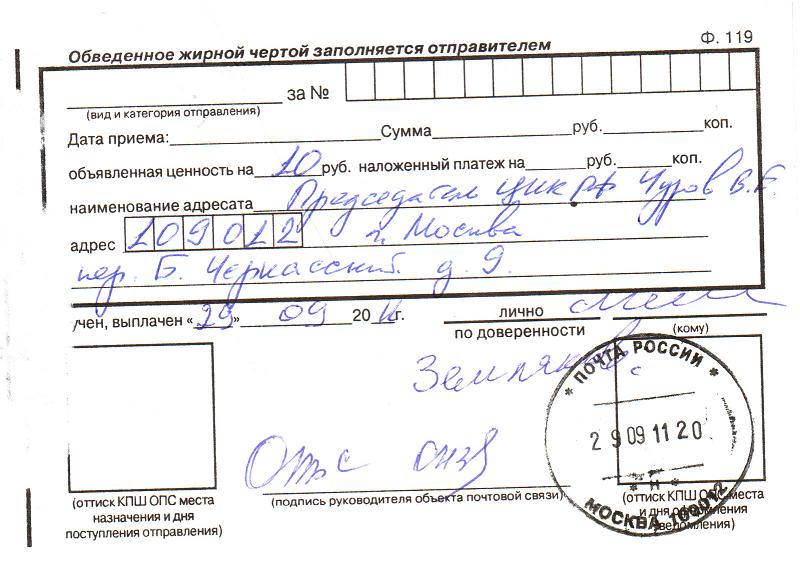 Обведенное жирной чертой заполняется отправителем
Ф. 119
за №
(вид и категория отправления)
Дата приема: Сумма руб. коп.
объявленная ценность на 10 руб. наложенный платеж на руб. коп.
наименование адресата Председателю ЦИК РФ Чуров В.Е.
адрес 109012 г. Москва
пер. Б. Черкасский д. 9.
учен, выплачен «29» 09 2011г.
лично
по доверенности
(кому)
Земляков
ПОЧТА РОССИИ
29 09 11 20
* Н *
МОСКВА 109012
(подпись руководителя объекта почтовой связи)
(оттиск КПШ ОПС места
назначения и дня
поступления отправления)
(оттиск КПШ ОПС места
и дня оформления
уведомления)